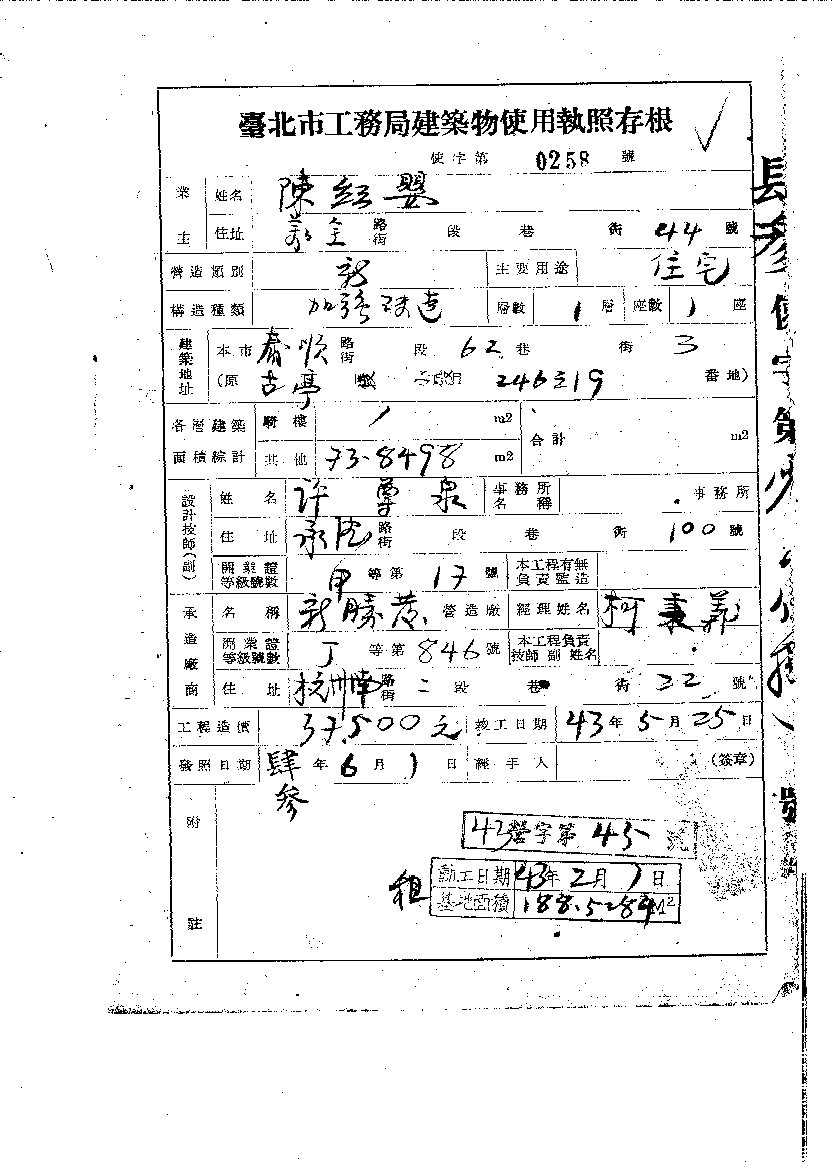 臺北市工務局建築物使用執照存根
使字第 0258 號
業主 姓名 陳紅嬰
住址 路街 段 巷 街 44 號
營造類別 新 主要用途 住宅
構造種類 加強磚造 層數 1 層 座數 1 座
建築地址 本市 泰順 路街 段 62 巷 街 3
(原 古亭 246之19 番地)
各層建築面積綜計 騎樓 / m2 合計 m2
其他 73.8498 m2
設計技師(副) 姓名 許 泉 事務所名稱 事務所
住址 承德 路街 段 巷 街 100 號
開業證等級號數 甲 等第 17 號 本工程有無負責監造
承造廠商 名稱 新勝茂 營造廠 經理姓名 柯秉義
開業證等級號數 丁 等第 846 號 本工程負責技師副姓名
住址 杭州南 路街 二 段 巷 街 32 號
工程造價 37,500元 竣工日期 43年5月25日
發照日期 肆參 年 6 月 1 日 經手人 (簽章)
附註
43營字第 45 號
動工日期 43年2月1日
租 基地面積 188.5284M²
使字第
號